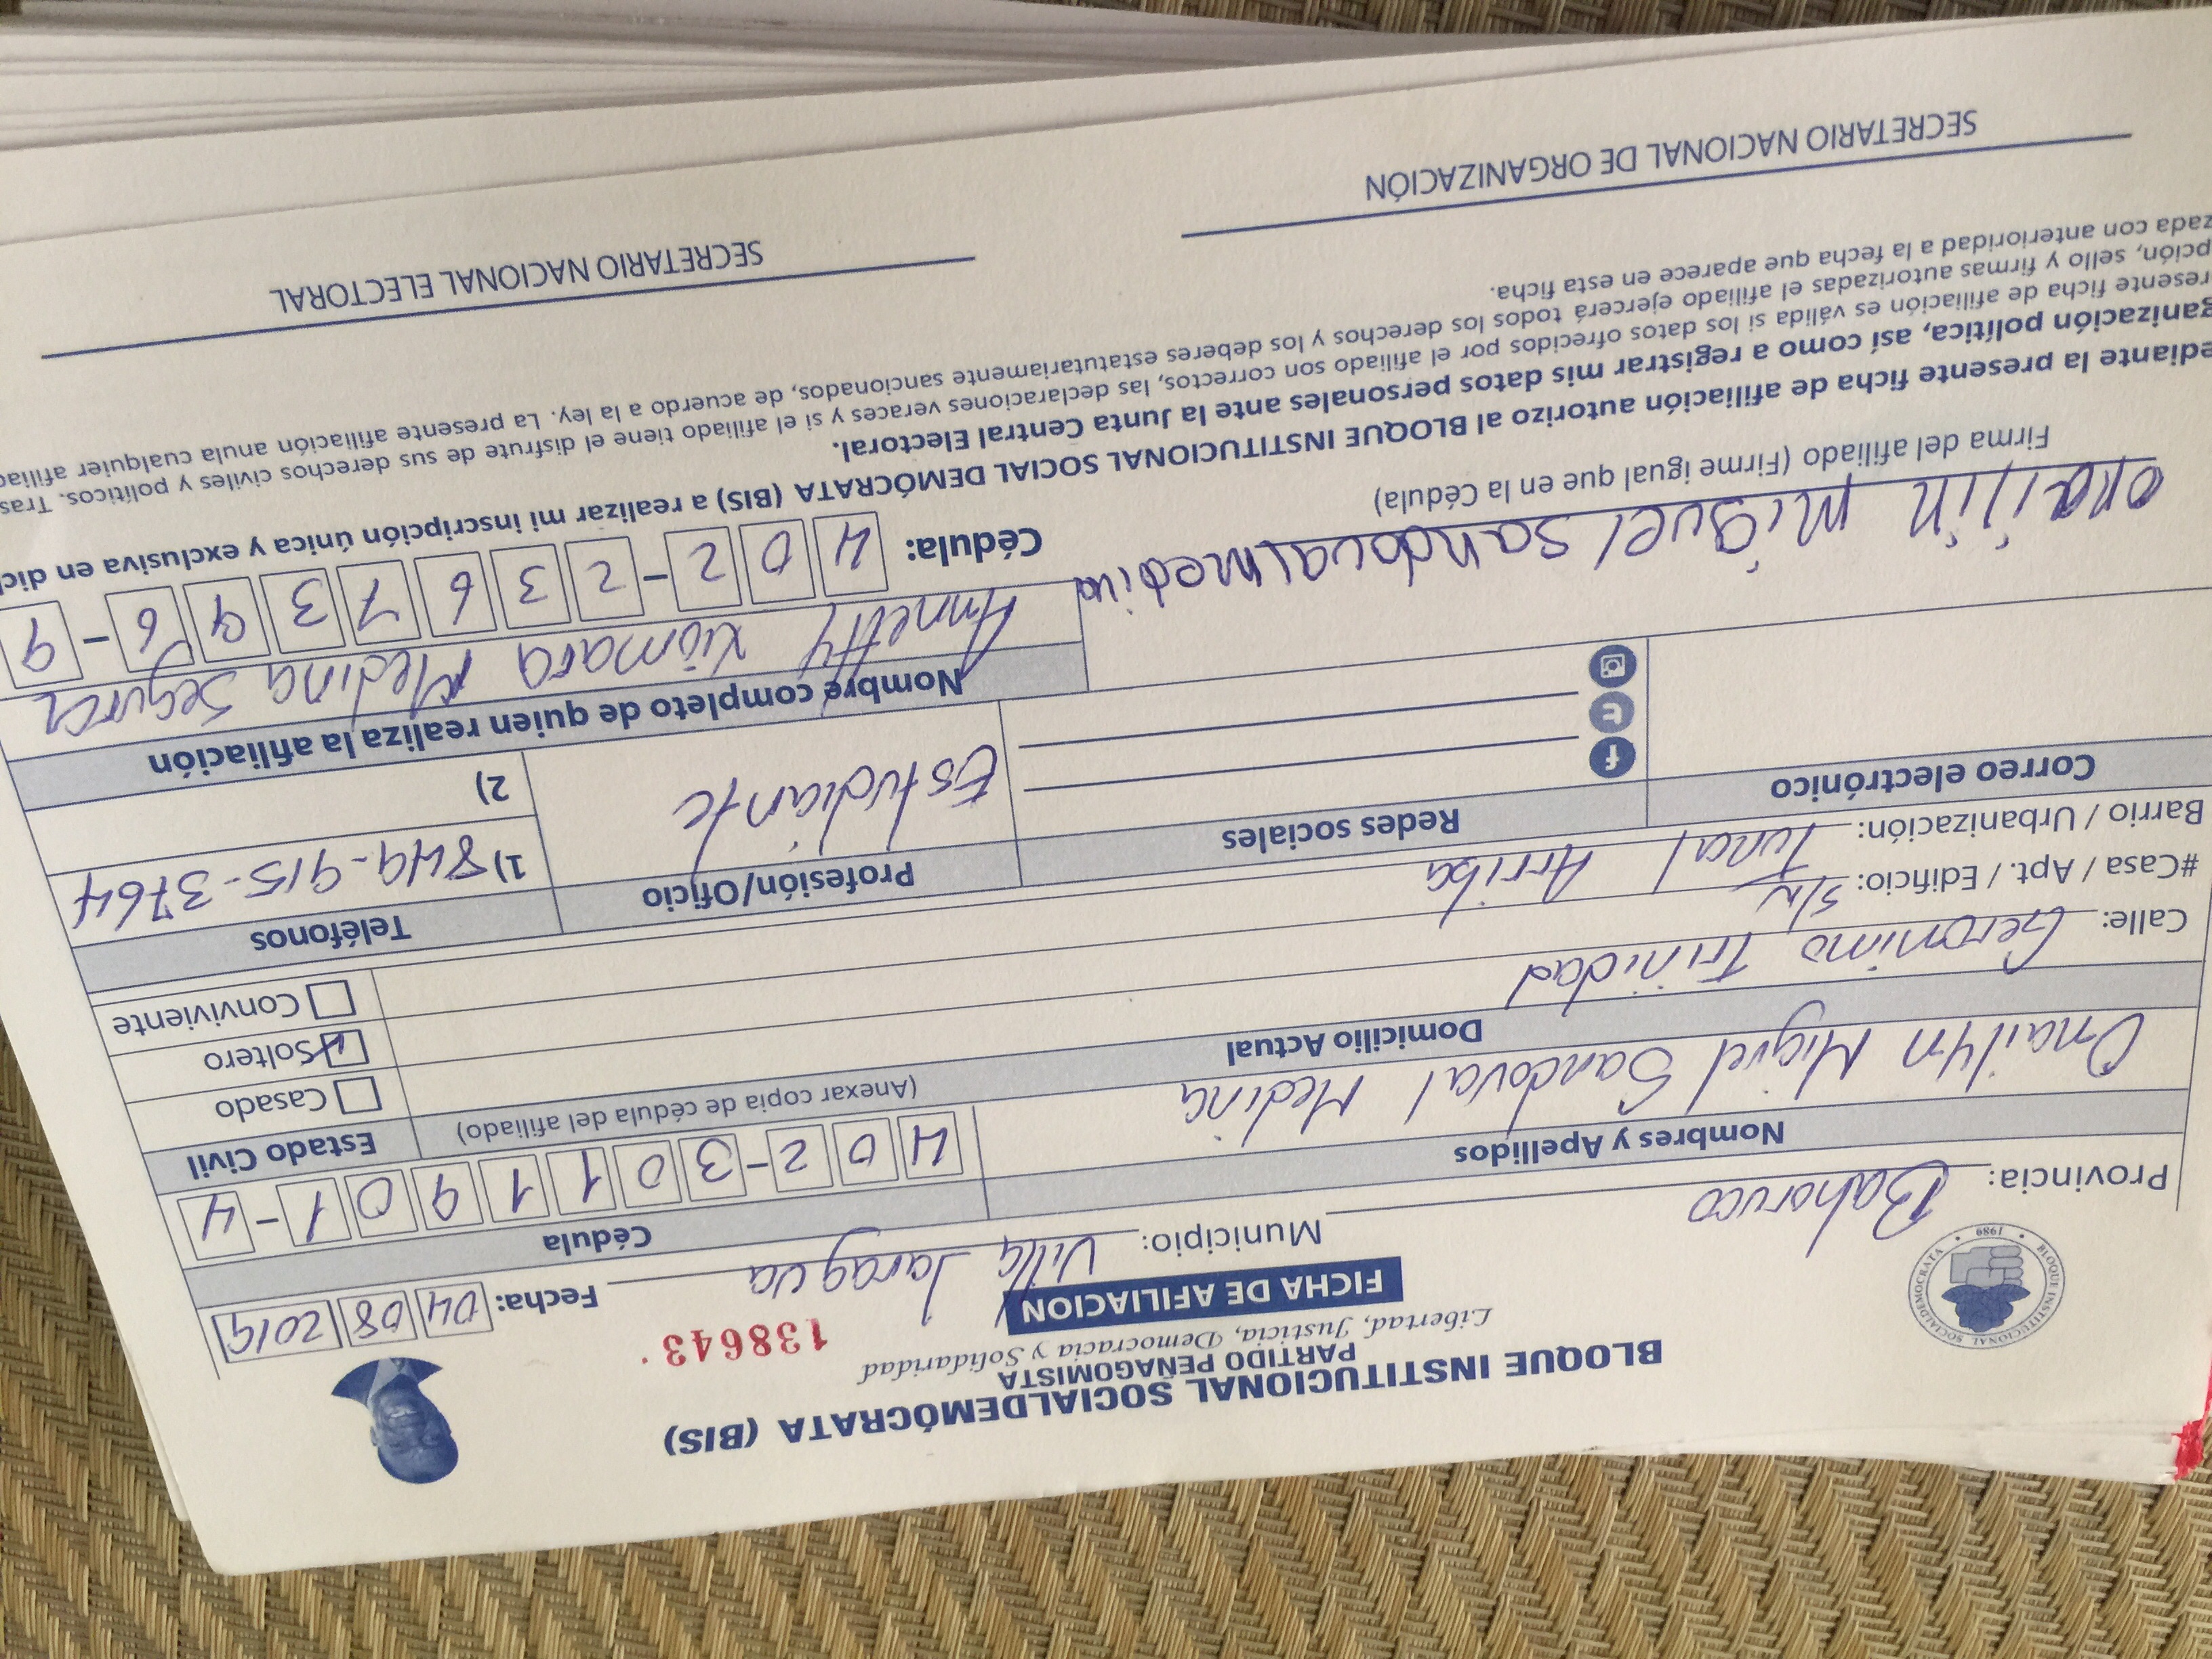 BLOQUE INSTITUCIONAL SOCIALDEMÓCRATA (BIS)
PARTIDO PEÑAGOMISTA
Libertad, Justicia, Democracia y Solidaridad
FICHA DE AFILIACION
138643
BLOQUE INSTITUCIONAL SOCIALDEMOCRATA
1989
Fecha: 04 08 2019
Provincia: Bahoruco Municipio: Villa Jaragua
Nombres y Apellidos
Cédula
Omailyn Miguel Sandoval Medina
402-3011901-4
Estado Civil
(Anexar copia de cédula del afiliado)
Domicilio Actual
Casado
Soltero
Conviviente
Calle: Geronimo Trinidad
#Casa / Apt. / Edificio: S/N
Barrio / Urbanización: Tunal Arriba
Correo electrónico
Redes sociales
Profesión/Oficio
Teléfonos
Estudiante
1) 849-915-3764
2)
Nombre completo de quien realiza la afiliación
Annetty Xiomara Medina Segura
Miguel Sandoval Medina
Firma del afiliado (Firme igual que en la Cédula)
Cédula: 402-2367396-9
ediante la presente ficha de afiliación autorizo al BLOQUE INSTITUCIONAL SOCIAL DEMÓCRATA (BIS) a realizar mi inscripción única y exclusiva en dic
ganización política, así como a registrar mis datos personales ante la Junta Central Electoral.
resente ficha de afiliación es válida si los datos ofrecidos por el afiliado son correctos, las declaraciones veraces y si el afiliado tiene el disfrute de sus derechos civiles y políticos. Tras
pción, sello y firmas autorizadas el afiliado ejercerá todos los derechos y los deberes estatutariamente sancionados, de acuerdo a la ley. La presente afiliación anula cualquier afiliac
zada con anterioridad a la fecha que aparece en esta ficha.
SECRETARIO NACIONAL DE ORGANIZACIÓN
SECRETARIO NACIONAL ELECTORAL